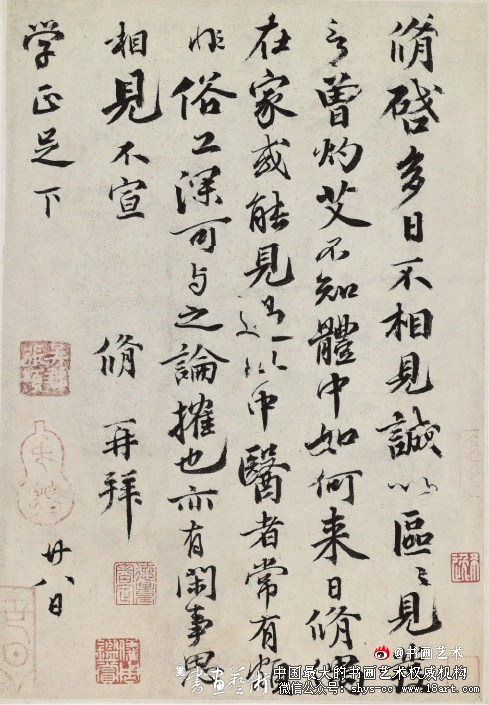 脩啓多日不相見誠以區〻見
言曾灼艾不知體中如何来日脩
在家或能見過此中醫者常有
非俗工深可与之論搉也亦有閑事
相見不宣
脩再拜
廿八日
学正足下
@书画艺术
中国最大的书画艺术权威机构
微信公众号：shys-cc www.18art.com